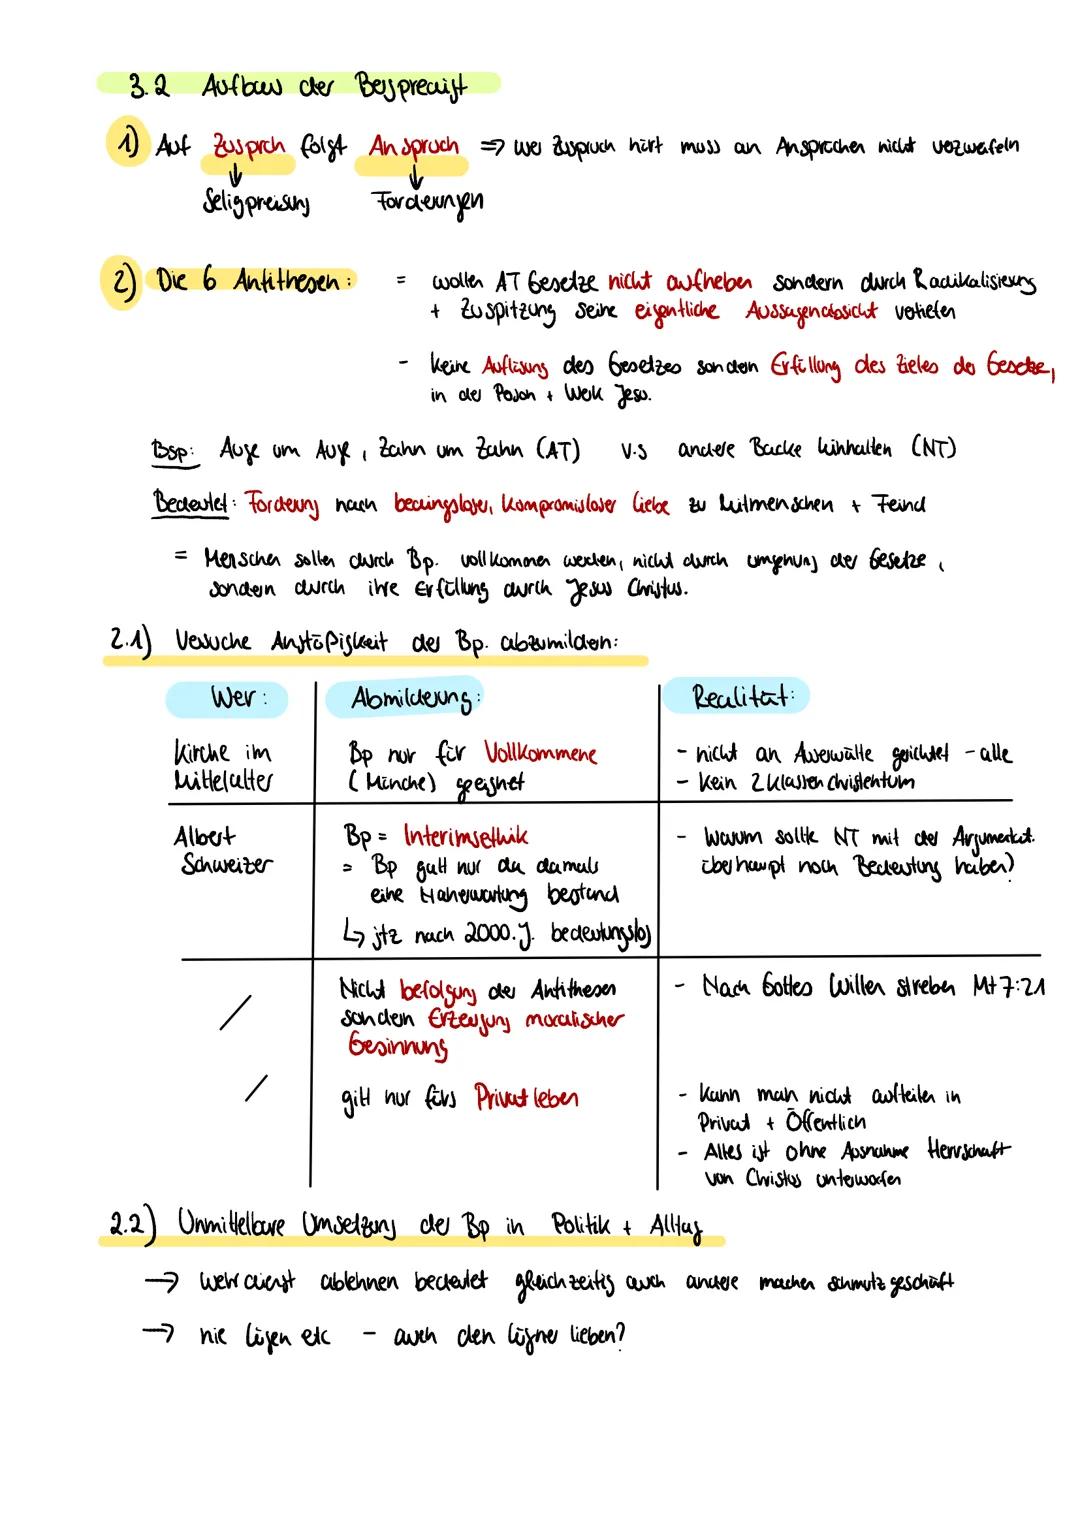 3.2 Aufbau der Bergpredigt
1) Auf Zuspruch folgt Anspruch => wer Zuspruch hört muss an Ansprüchen nicht verzweifeln
↓ ↓
Seligpreisung Forderungen
2) Die 6 Antithesen: = wollen AT Gesetze nicht aufheben sondern durch Radikalisierung
+ Zuspitzung seine eigentliche Aussagenabsicht vertiefen
- Keine Auflösung des Gesetzes sondern Erfüllung des Zieles des Gesetze,
in der Person + Werk Jesu.
Bsp: Auge um Auge, Zahn um Zahn (AT) v.s andere Backe hinhalten (NT)
Bedeutet: Forderung nach bedingsloser, kompromisloser Liebe zu Mitmenschen + Feind
= Menschen sollen durch Bp. vollkommen werden, nicht durch umgehung der Gesetze,
sondern durch ihre Erfüllung durch Jesus Christus.
2.1) Versuche Anstößigkeit der Bp. abzumildern:
Wer: Abmilderung: Realität:
Kirche im Bp nur für Vollkommene - nicht an Auserwälte gerichtet - alle
Mittelalter (Mönche) geeignet - Kein 2 Klassen christentum
Albert Bp = Interimsethik - Warum sollte NT mit der Argumentat.
Schweizer = Bp galt nur da damals überhaupt noch Bedeutung haben?
eine Naherwartung bestand
↳ jtz nach 2000.J. bedeutungslos
/ Nicht befolgung der Antithesen - Nach Gottes Willen streben Mt 7:21
sondern Erzeugung moralischer
Gesinnung
/ gilt nur fürs Privatleben - Kann man nicht aufteilen in
Privat + Öffentlich
- Alles ist ohne Ausnahme Herrschaft
von Christus unterworfen
2.2) Unmittelbare Umsetzung der Bp in Politik + Alltag
→ Wehrdienst ablehnen bedeutet gleichzeitig auch andere machen schmutzgeschäft
→ nie lügen etc - auch den lügner lieben?